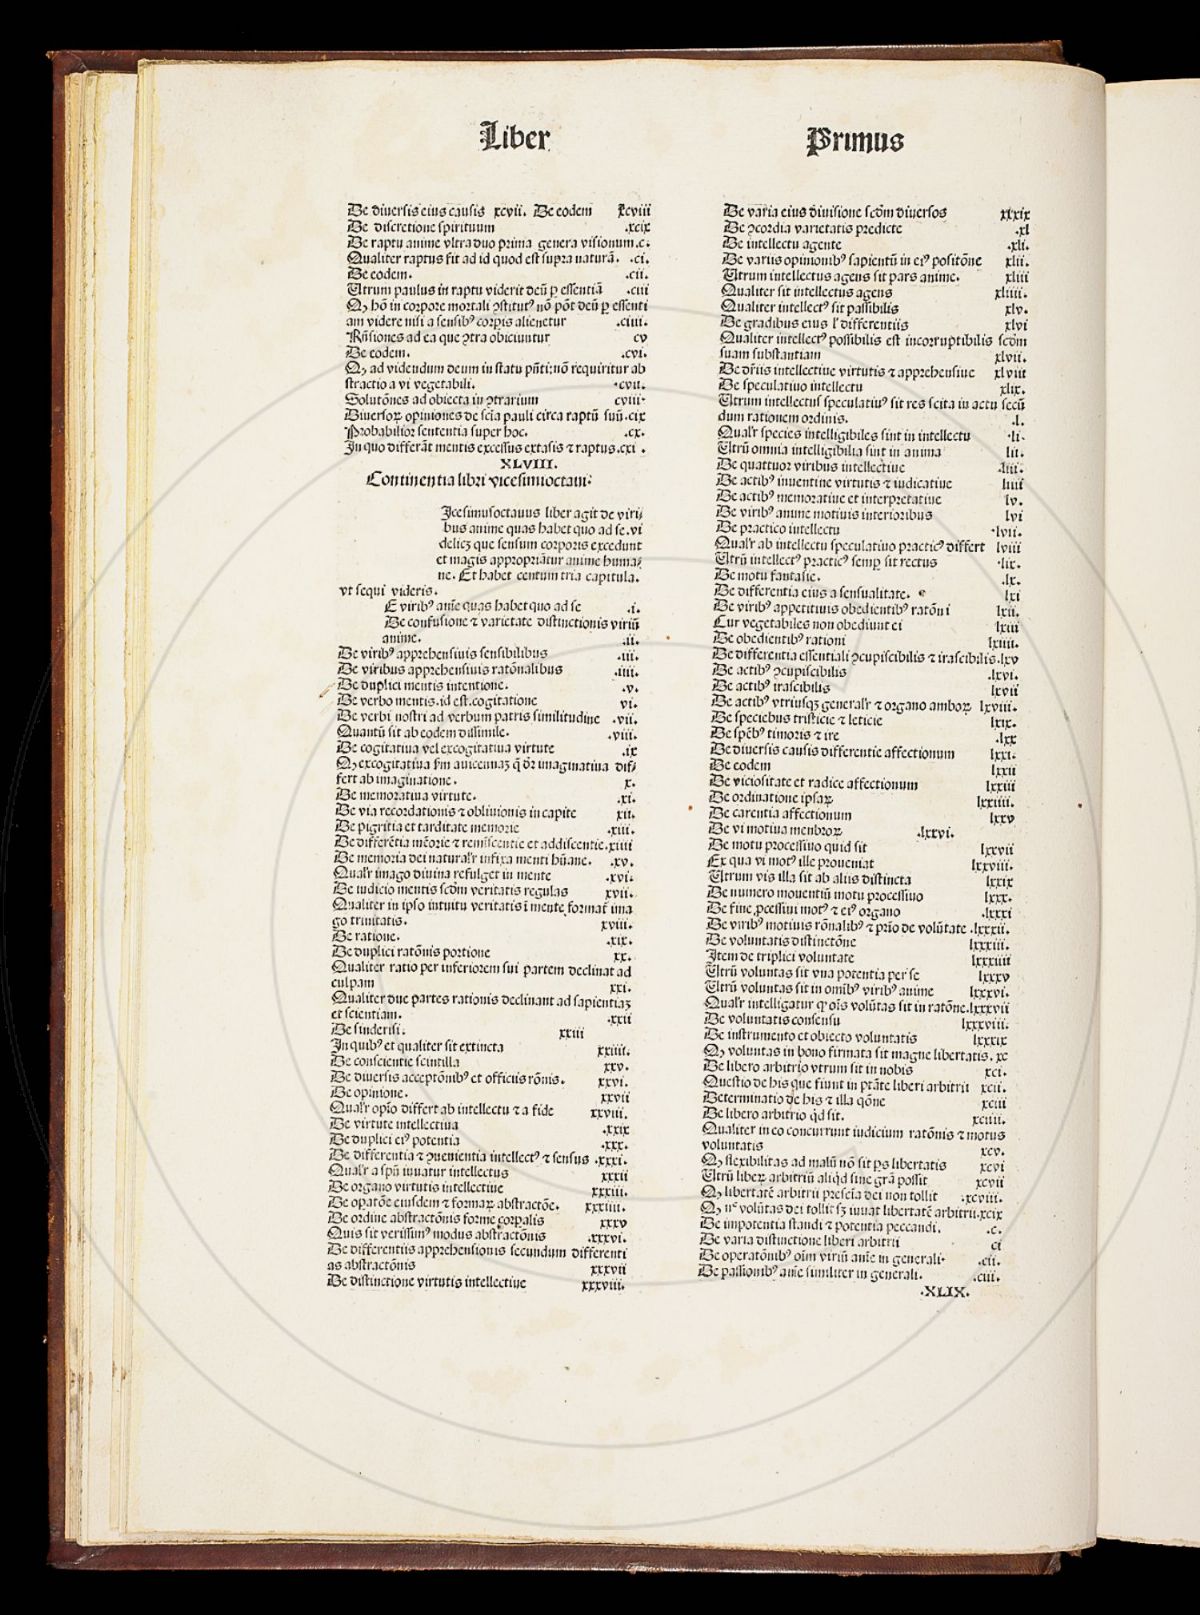 Liber Primus
De diuersis eius causis xcvii. De eodem xcviii
De discretione spirituum .xcix
De raptu anime vltra duo prima genera visionum.c.
Qualiter raptus fit ad id quod est supra naturã. .ci.
De eodem. .cii.
Utrum paulus in raptu viderit deũ ꝑ essentiã .ciii
Qꝫ hõ in corpore mortali ꝯstitutꝰ nõ põt deũ ꝑ essenti
am videre nisi a sensibꝰ corpis alienetur .ciiii.
Rñsiones ad ea que ꝯtra obiciuntur cv
De eodem. .cvi.
Qꝫ ad videndum deum in statu pñti: nõ requiritur ab
stractio a vi vegetabili. .cvii.
Solutõnes ad obiecta in ꝯtrarium cviii.
Diuersoꝝ opiniones de scĩa pauli circa raptũ suũ.cix
Probabilior sententia super hoc. .cx.
In quo differãt mentis excessus extasis ⁊ raptus.cxi .
XLVIII.
Continentia libri vicesimioctaui.
Icesimusoctauus liber agit de virij
bus anime quas habet quo ad se.vi
delicꝫ que sensum corporis excedunt
et magis appropriãtur anime huma⸗
ne. Et habet centum tria capitula.
vt sequi videris.
E viribꝰ anĩe quas habet quo ad se .i.
De confusione ⁊ varietate distinctionis viriũ
anime. .ii.
De viribꝰ apprehensiuis sensibilibus .iii.
De viribus apprehensiuis ratõnalibus .iiii.
De duplici mentis intentione. .v.
De verbo mentis.id est.cogitatione vi.
De verbi nostri ad verbum patris similitudine .vii.
Quantũ sit ab eodem dissimile. .viii.
De cogitatiua vel excogitatiua virtute .ix
Qꝫ excogitatiua ẜm auicennaꝫ q̃ dr̃ imaginatiua dif⸗
fert ab imaginatione. x.
De memoratiua virtute. .xi.
De via recordationis ⁊ obliuionis in capite xii.
De pigritia et tarditate memorie .xiii.
De differẽtia mẽorie ⁊ remiscentie et addiscentie.xiiii
De memoria dei naturaľr infixa menti hũane. .xv.
Quaľr imago diuina refulget in mente .xvi.
De iudicio mentis scd̃m veritatis regulas xvii.
Qualiter in ipso intuitu veritatis ĩ mente formať ima
go trinitatis. xviii.
De ratione. .xix.
De duplici ratõnis portione xx.
Qualiter ratio per inferiorem sui partem declinat ad
culpam xxi.
Qualiter due partes rationis declinant ad sapientiaꝫ
et scientiam. .xxii
De sinderisi. xxiii
In quibꝰ et qualiter sit extincta xxiiii.
De conscientie scintilla xxv.
De diuersis acceptõnibꝰ et officiis rõnis. xxvi.
De opinione. xxvii
Quaľr opĩo differt ab intellectu ⁊ a fide xxviii.
De virtute intellectiua .xxix
De duplici eiꝰ potentia .xxx.
De differentia ⁊ ꝯuenientia intellectꝰ ⁊ sensus .xxxi.
Quaľr a spũ iuuatur intellectus xxxii
De organo virtutis intellectiue xxxiii.
De opatõe eiusdem ⁊ formaꝝ abstractõe. xxxiiii.
De ordine abstractõnis forme corpalis xxxv
Quis sit verissimꝰ modus abstractõnis .xxxvi.
De differentiis apprehensionis secundum differenti
as abstractõnis xxxvii
De distinctione virtutis intellectiue xxxviii.
De varia eius diuisione scd̃m diuersos xxxix
De ꝯcordia varietatis predicte .xl
De intellectu agente .xli.
De variis opinionibꝰ sapientũ in eiꝰ positõne xlii.
Utrum intellectus agens sit pars anime. xliii
Qualiter sit intellectus agens xliiii.
Qualiter intellectꝰ sit passibilis xlv.
De gradibus eius ľ differentiis xlvi
Qualiter intellectꝰ possibilis est incorruptibilis scd̃m
suam substantiam xlvii.
De dr̃iis intellectiue virtutis ⁊ apprehensiue xlviii
De speculatiuo intellectu xlix.
Utrum intellectus speculatiuꝰ sit res scita in actu secũ
dum rationem ordinis. .l.
Quaľr species intelligibiles sint in intellectu .li.
Utrũ omnia intelligibilia sint in anima lii.
De quattuor viribus intellectiue .liii.
De actibꝰ inuentiue virtutis ⁊ iudicatiue liiii
De actibꝰ memoratiue et interpretatiue lv.
De viribꝰ anime motiuis interioribus lvi
De practico intellectu .lvii.
Quaľr ab intellectu speculatiuo practicꝰ differt lviii
Utrũ intellectꝰ practicꝰ semꝑ sit rectus .lix.
De motu fantasie. .lx.
De differentia eius a sensualitate. lxi
De viribꝰ appetitiuis obedientibꝰ ratõni lxii.
Cur vegetabiles non obediunt ei lxiii
De obedientibꝰ rationi lxiiii.
De differentia essentiali ꝯcupiscibilis ⁊ irascibilis.lxv
De actibꝰ ꝯcupiscibilis .lxvi.
De actibꝰ irascibilis lxvii
De actibꝰ vtriusqꝫ generaľr ⁊ organo amboꝝ lxviii.
De speciebus tristicie ⁊ leticie lxix.
De spẽbꝰ timoris ⁊ ire .lxx
De diuersis causis differentie affectionum lxxi.
De eodem lxxii
De viciositate et radice affectionum lxxiii
De ordinatione ipsaꝝ lxxiiii.
De carentia affectionum lxxv
De vi motiua menbroꝝ .lxxvi.
De motu processiuo quid sit lxxvii
Ex qua vi motꝰ ille proueniat lxxviii.
Utrum vis illa sit ab aliis distincta lxxix
De numero mouentiũ motu processiuo lxxx.
De fine ꝓcessiui motꝰ ⁊ eiꝰ organo .lxxxi
De viribꝰ motiuis rõnalibꝰ ⁊ prĩo de volũtate .lxxxii.
De voluntatis distinctõne lxxxiii.
Item de triplici voluntate lxxxiiii
Utrũ voluntas sit vna potentia per se lxxxv
Utrũ voluntas sit in omĩbꝰ viribꝰ anime lxxxvi.
Quaľr intelligatur ꝙ oĩs volũtas sit in ratõne.lxxxvii
De voluntatis consensu lxxxviii.
De instrumento et obiecto voluntatis lxxxix
Qꝫ voluntas in bono firmata sit magne libertatis. xc
De libero arbitrio vtrum sit in nobis xci.
Questio de his que fiunt in ptãte liberi arbitrii xcii.
Determinatio de his ⁊ illa qõne xciii
De libero arbitrio qd̃ sit. xciiii.
Qualiter in eo concurrunt iudicium ratõnis ⁊ motus
voluntatis xcv.
Qꝫ flexibilitas ad malũ nõ sit ps libertatis xcvi
Utrũ libeꝝ arbitriũ aliqd̃ sine grã possit xcvii
Qꝫ libertatẽ arbitrii prescĩa dei non tollit .xcviii.
Qꝫ nͨ volũtas dei tollit sꝫ iuuat libertatẽ arbitrii.xcix
De impotentia standi ⁊ potentia peccandi. .c.
De varia distinctione liberi arbitrii ci
De operatõnibꝰ oĩm viriũ anĩe in generali. .cii.
De passionibꝰ anĩe similiter in generali. .ciii.
.XLIX.